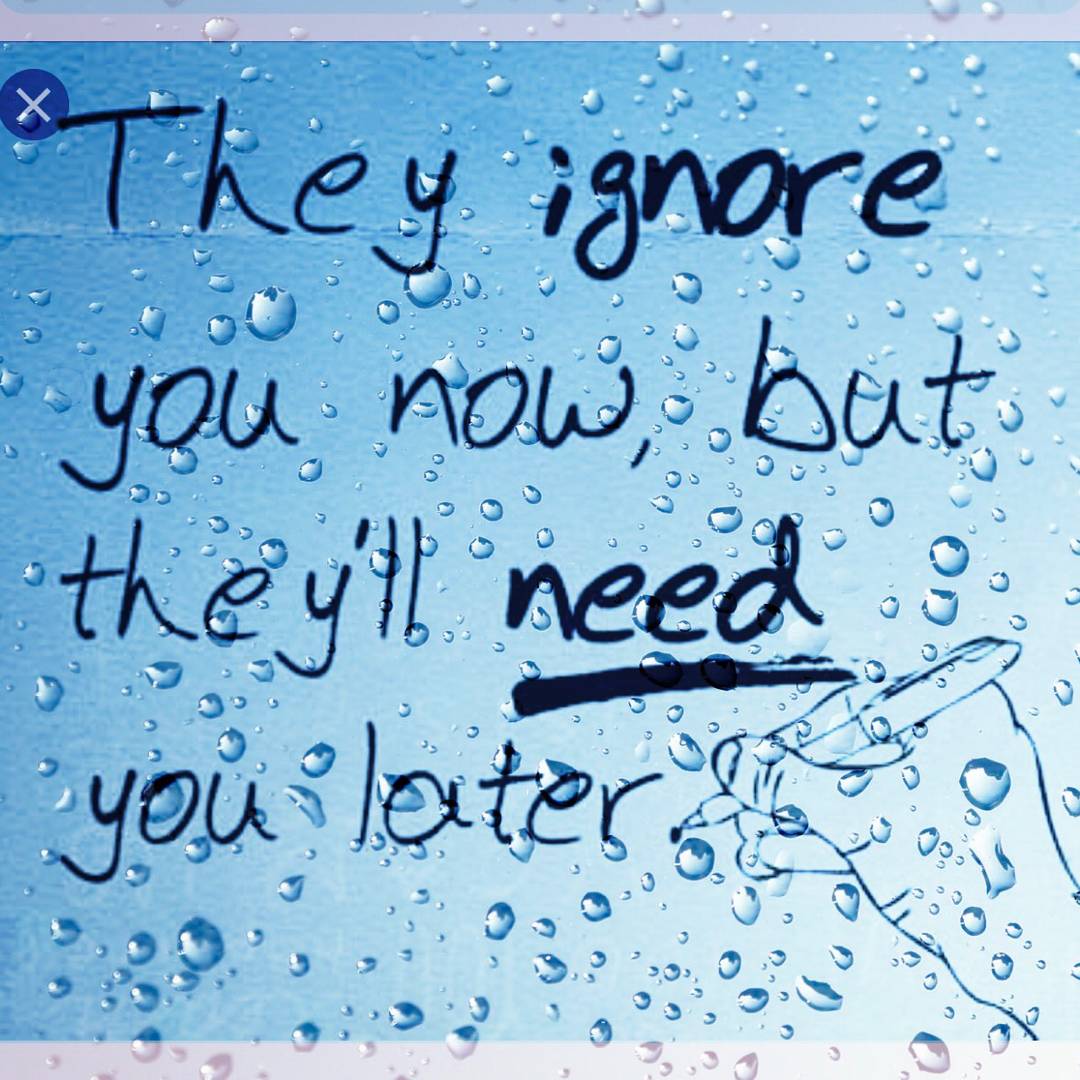 They ignore
you now, but
they'll need
you later